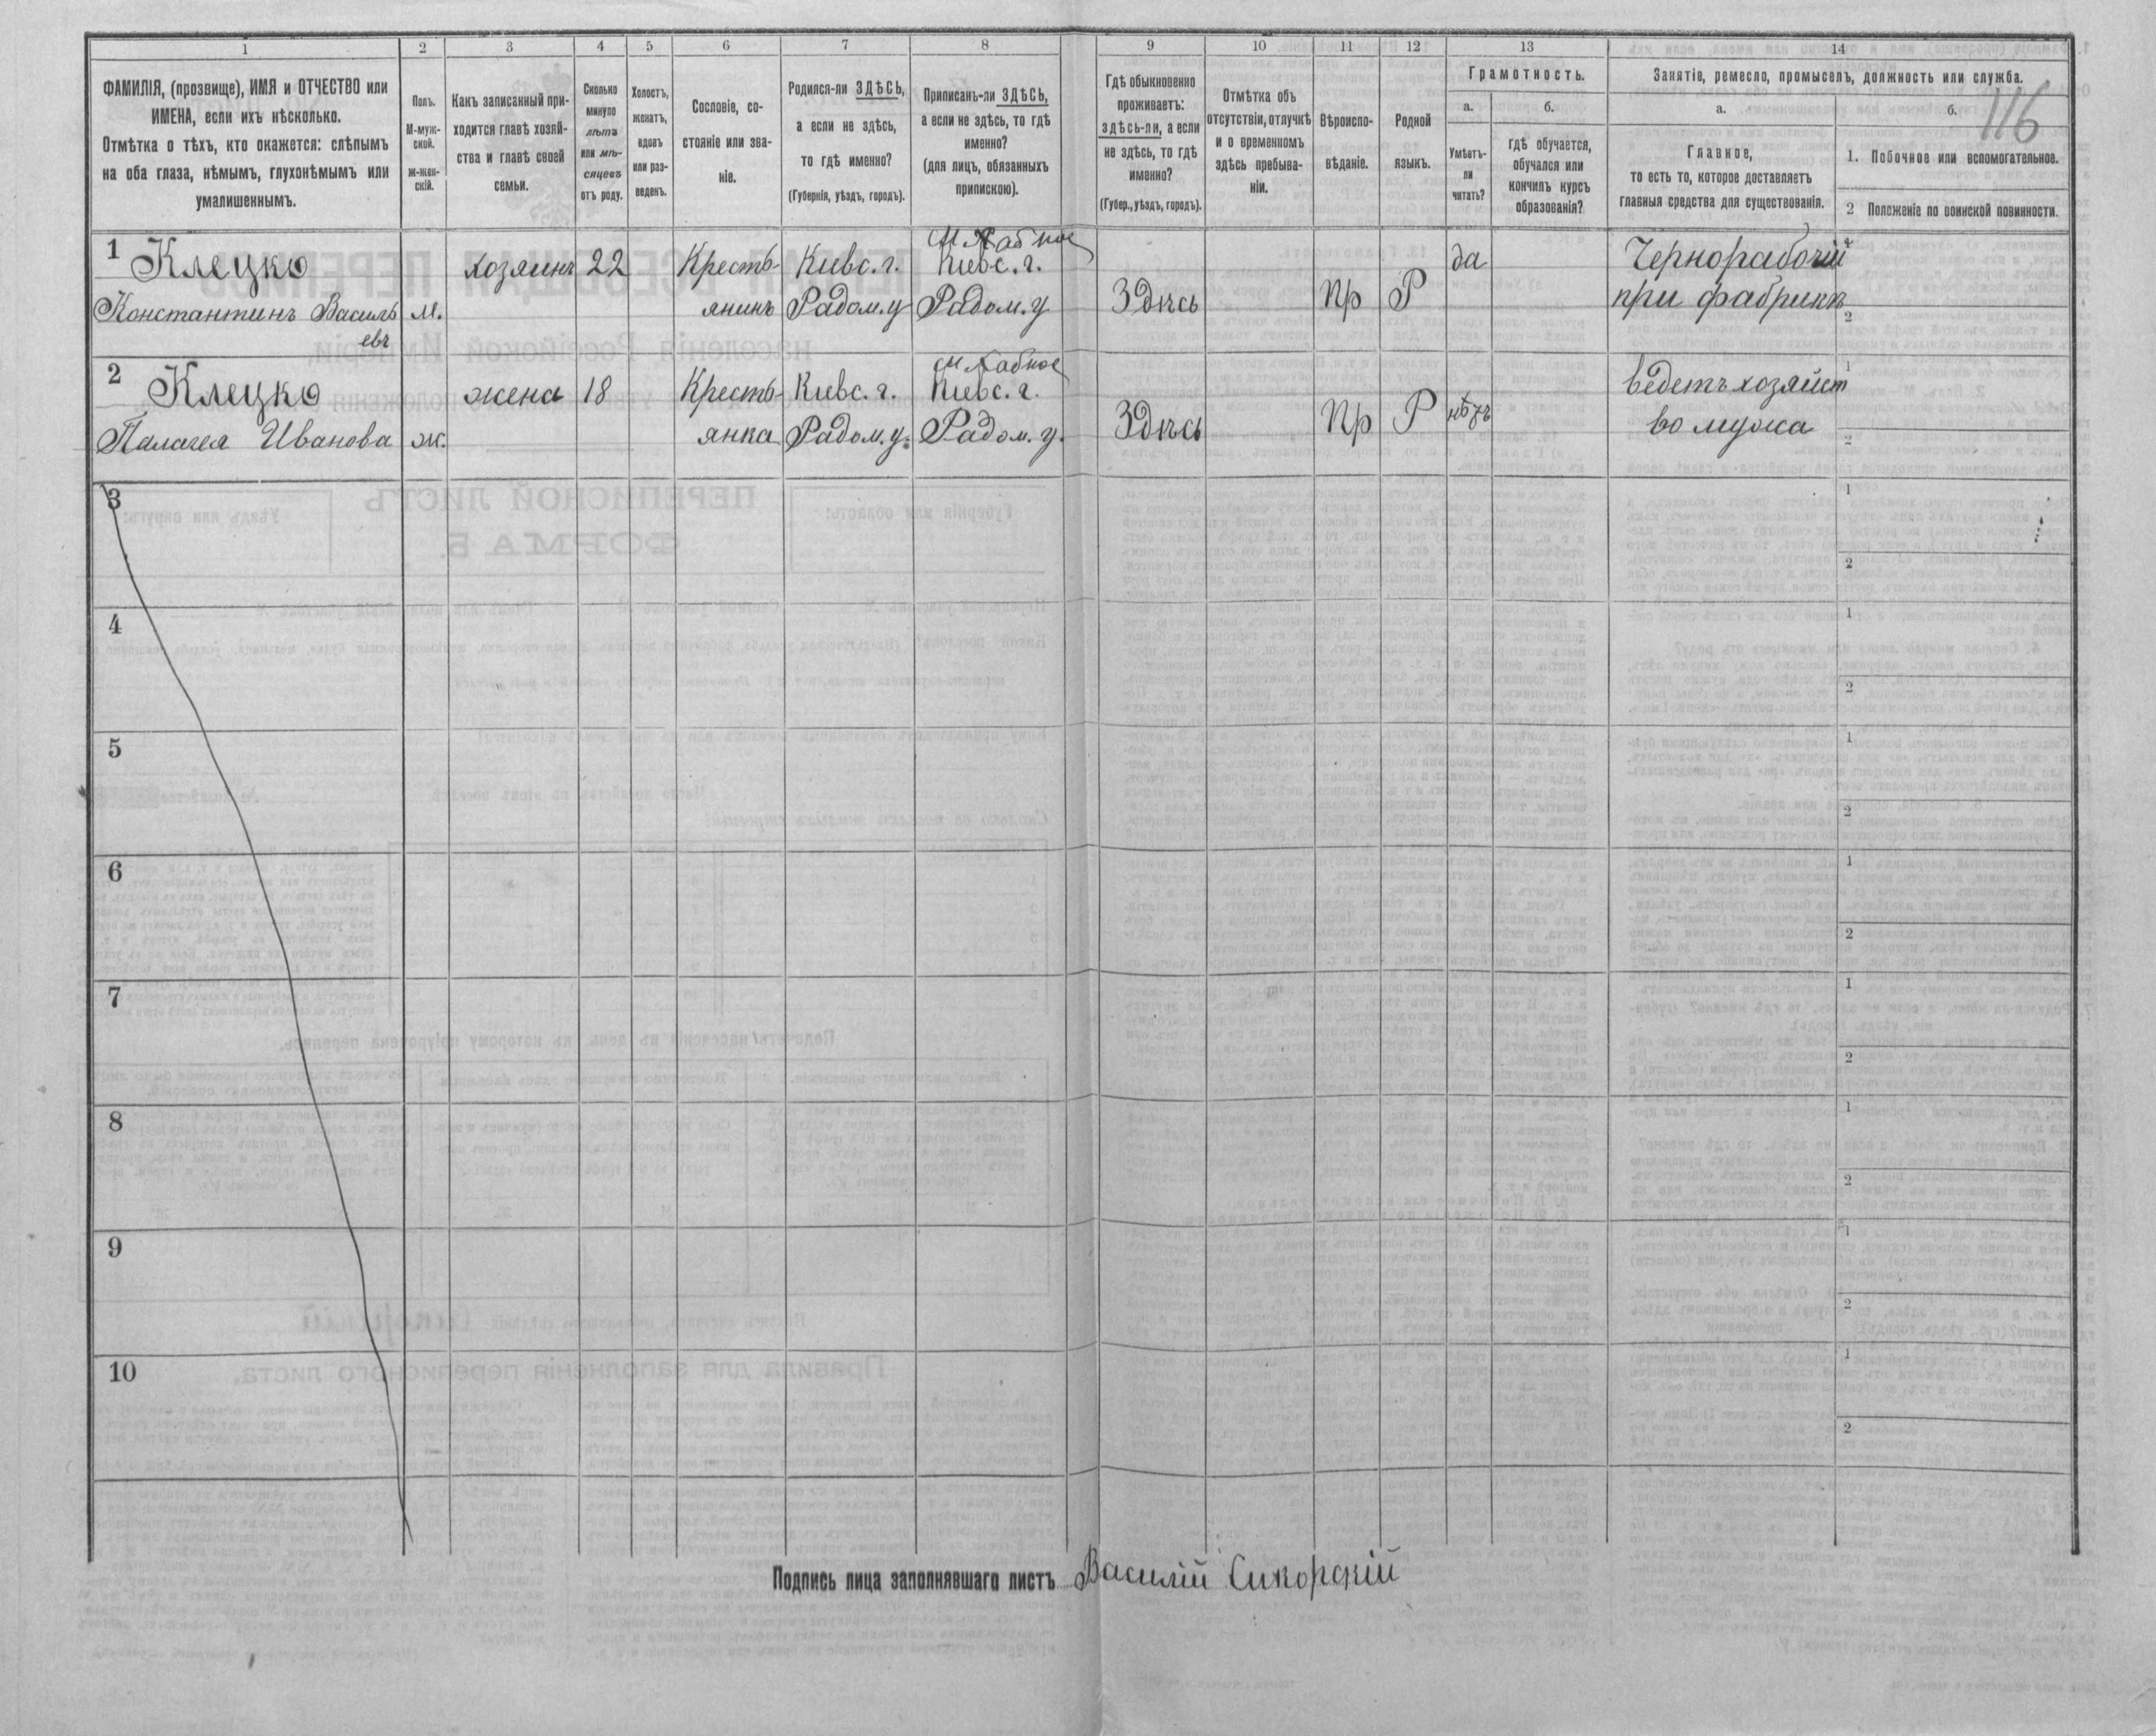 1 2 3 4 5 6 7 8 9 10 11 12 13 14
ФАМИЛІЯ, (прозвище), ИМЯ и ОТЧЕСТВО или
ИМЕНА, если ихъ нѣсколько.
Отмѣтка о тѣхъ, кто окажется: слѣпымъ
на оба глаза, нѣмымъ, глухонѣмымъ или
умалишеннымъ.
Полъ.
М-муж-
ской.
Ж-жен-
скій.
Какъ записанный при-
ходится главѣ хозяй-
ства и главѣ своей
семьи.
Сколько
минуло
лѣтъ
или мѣ-
сяцевъ
отъ роду.
Холостъ,
женатъ,
вдовъ
или раз-
веденъ.
Сословіе, со-
стояніе или зва-
ніе.
Родился-ли ЗДѢСЬ,
а если не здѣсь,
то гдѣ именно?
(Губернія, уѣздъ, городъ).
Приписанъ-ли ЗДѢСЬ,
а если не здѣсь, то гдѣ
именно?
(для лицъ, обязанныхъ
припискою).
Гдѣ обыкновенно
проживаетъ:
здѣсь-ли, а если
не здѣсь, то гдѣ
именно?
(Губер., уѣздъ, городъ).
Отмѣтка объ
отсутствіи, отлучкѣ
и о временномъ
здѣсь пребыва-
ніи.
Вѣроиспо-
вѣданіе.
Родной
языкъ.
Грамотность.
а.
Умѣетъ-
ли
читать?
б.
гдѣ обучается,
обучался или
кончилъ курсъ
образованія?
Занятіе, ремесло, промыселъ, должность или служба.
116
а.
Главное,
то есть то, которое доставляетъ
главныя средства для существованія.
б.
1. Побочное или вспомогательное.
2 Положеніе по воинской повинности.
м. Хабное
1 Клецко хозяинъ 22 Кресть- Кіевс. г. Кіевс. г. да Чернорабочій
Константинъ Василь м. янинъ Радом. у Радом. у Здѣсь Пр Р при фабрикѣ
евъ
1
2
м. Хабное
2 Клецко жена 18 Кресть- Кіевс. г. Кіевс. г. ведетъ хозяйст
Палагея Иванова ж. янка Радом. у. Радом. у. Здѣсь Пр Р нѣтъ во мужа
1
2
3
1
2
4
1
2
5
1
2
6
1
2
7
1
2
8
1
2
9
1
2
10
1
2
Подпись лица заполнявшаго листъ Василій Сикорскій